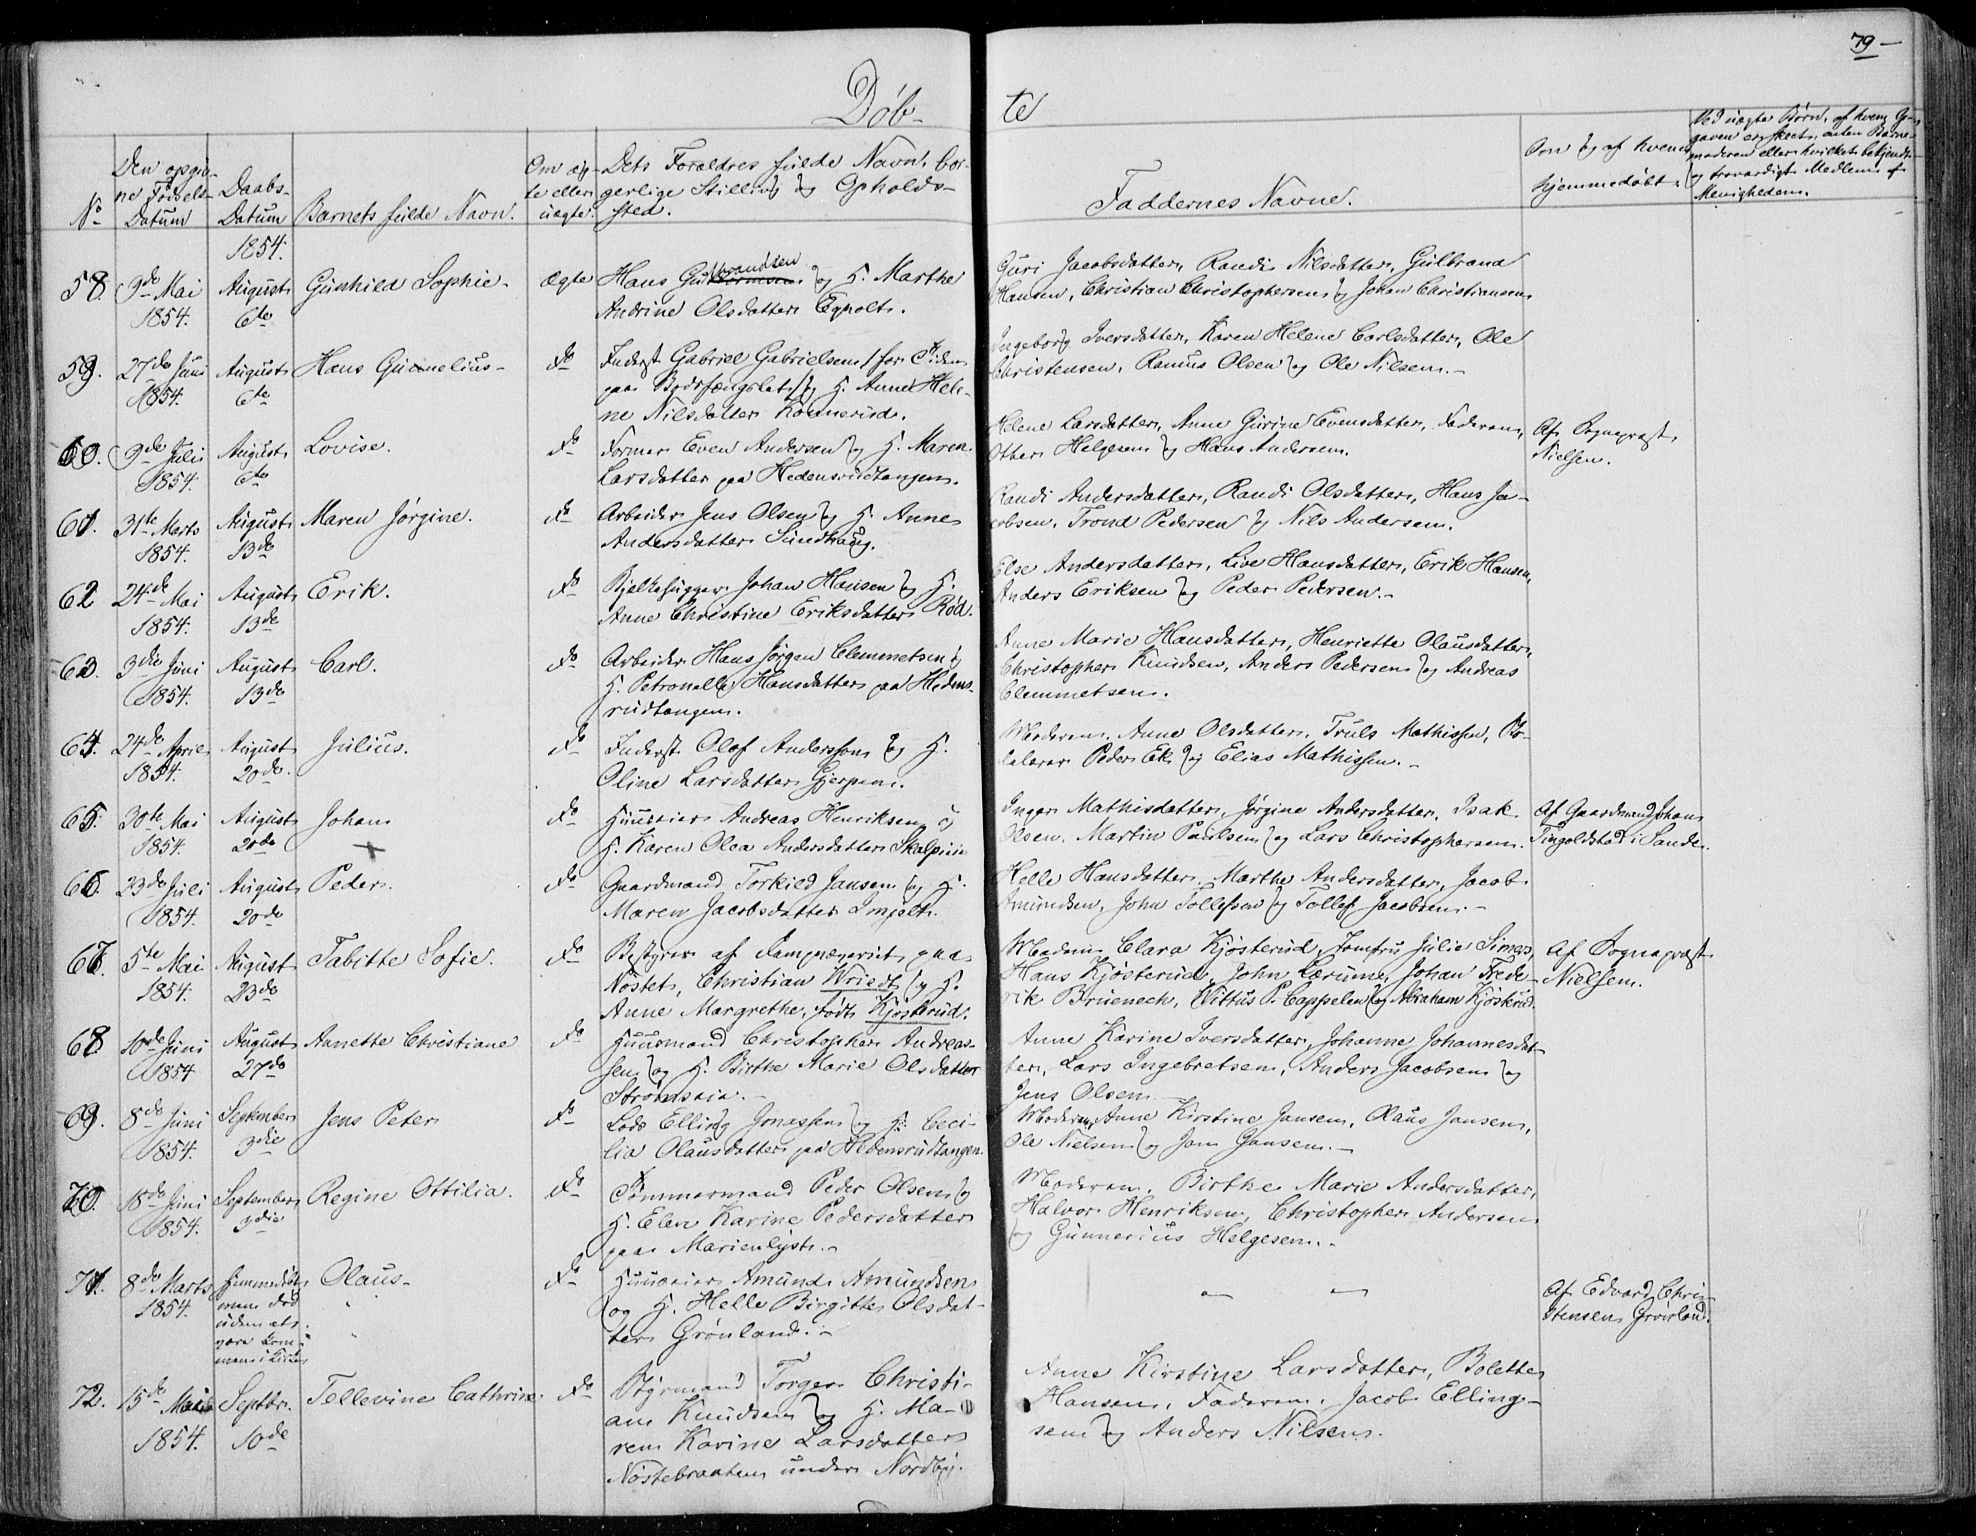 79 —
Døb- te
No
Den opgiv-
ne Fødsels-
Datum
Daabs-
Datum
Barnets fulde Navn.
Om æg-
te eller
uægte.
Dets Forældres fulde Navn, bor-
gerlige Stilling og Opholds-
sted.
Faddernes Navne.
Om og af hvem
hjemmedøbt.
Ved uægte Børn, af hvem Op-
gaven er skeet, enten Barne-
moderen eller hvilket bekjendt
og troværdigt Medlem af
Menigheden.
1854.
58. 9de Mai August Gunhild Sophie - Ægte Hans Gulbrandsen og H. Marthe
1854. 6te Andrine Olsdatter Egholt.
Guri Jacobsdatter, Randi Nilsdatter, Gulbrand
Hansen, Christian Christophersen og Johan Christiansen
59. 27de Juni August Hans Gunnelius - do Inderst Gabriel Gabrielsen, (for Tiden
1854. 6te paa Bodsfængslet) og H. Anne Hele-
ne Nilsdatter Konnerud.
Ingeborg Iversdatter, Karen Helene Carlsdatter, Ole
Christensen, Ramus Olsen og Ole Nilsen. -
60. 9de Juli August Lovise. do Former Even Andersen og H. Maren
1854. 6te Larsdatter paa Hedensrudtangen.
Helene Larsdatter, Anne Gurine Evensdatter, Faderen,
Otter Helgesen og Hans Andersen.
Af Sognepræst
Nielsen.
61. 31te Marts August Maren Jørgine. do Arbeider Jens Olsen og H. Anne
1854. 13de Andersdatter Sundhaug.
Randi Andersdatter, Randi Olsdatter, Hans Ja-
cobsen, Trond Pedersen og Nils Andersen.
62 24de Mai August Erik. do Bjelkehugger Johan Hansen og H.
1854. 13de Anne Christine Eriksdatter Rød.
Else Andersdatter, Live Hansdatter, Erik Hansen,
Anders Eriksen og Peder Pedersen. -
63. 3die Juni August Carl. do Arbeider Hans Jørgen Clemmetsen og
1854. 13de H. Petronelle Hansdatter paa Hedens-
rudtangen.
Anne Marie Hansdatter, Henriette Olausdatter,
Christopher Knudsen, Anders Pedersen og Andreas
Clemmetsen.
64. 24de April August Julius. do Inderst Olof Anderssen og H.
1854. 20de. Oline Larsdatter Gjerpen.
Moderen, Anne Olsdatter, Truls Mathissen,
Peder Ek og Elias Mathissen. -
65. 30te Mai August Johan do Huuseier Andreas Henriksen og
1854. 20de H. Karen Olea Andersdatter
Inger Mathisdatter, Jørgine Andersdatter, Isak
Olsen, Martin Paulsen og Lars Christophersen.
Af Gaardmand Johan
Tingoldstad i Sande.
66. 23de Juli August Peder. do Gaardmand Torkild Jansen og H.
1854. 20de Maren Jacobsdatter Imjelt.
Helle Hansdatter, Marthe Andersdatter, Jacob
Amundsen, John Tollefsen og Tollef Jacobsen. -
67. 5te Mai August Tabitte Sofie. do Bestyrer af Dampværnet paa
1854. 23de Nøstet, Christian Wriedt og H.
Anne Margrethe, født Kjøsterud.
Madam Clara Kjøsterud, Jomfru Julie Simers,
Hans Kjøsterud, John Lærum, Johan Frede-
rik Bruenech, Vittus P. Cappelen og Abraham Kjøsterud.
Af Sognepræst
Nielsen.
68 10de Juni August Annette Christiane do Huusmand Christopher Andreas-
1854 27de sen og H. Birthe Marie Olsdatter
Strømseia. -
Anne Karine Iversdatter, Johanne Johannesdat-
ter, Lars Ingebretsen, Anders Jacobsen og
Jens Olsen
69. 8de Juni September Jens Peter do Lods Elling Jonassen og H. Ceci-
1854. 3die lia Olausdatter paa Hedensrudtangen
Moderen, Anne Kirstine Jansen, Olaus Jansen,
Ole Nielsen og Jan Jansen. -
70. 18de Juni September Regine Ottilia. do Tømmermand Peder Olsen og
1854. 3die H. Elen Karine Pedersdatter
paa Marienlyst. -
Moderen, Birthe Marie Andersdatter,
Halvor Henriksen, Christopher Andersen
og Gunnerius Helgesen. -
71. 8de Marts Hjemmedøbt Olaus - do Huuseier Amund Amundsen
1854. men død og H. Helle Birgitte Olsdat-
uden at ter Grønland. -
være kom-
men i Kirke
Af Edvard Chri-
stensen Grønland.
72. 15de Mai Septbr. Tellevine Cathrine. do Styrmand Torger Christi-
1854. 10de an Knudsen og H. Ma-
ren Karine Larsdatter
Nøstebraaten under Nordby.
Anne Kirstine Larsdatter, Bolette
Hansen, Faderen, Jacob Elling-
sen og Anders Nilsen.